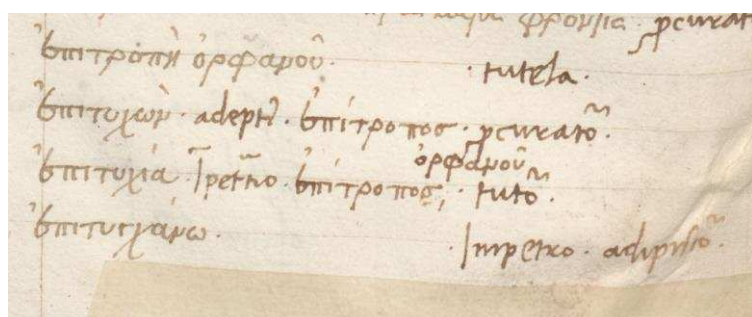 φροντὶς · ꝓcurat
ἐπιτροπὴ ὀρφανοῦ · tutela ·
ἐπιτυχὼν · adept⁹ · ἐπίτροπος · ꝓcurato᷒ ·
ὀρφανοῦ
ἐπιτυχία · Ipet̄tio · ἐπίτροπος · tuto᷒ ·
ἐπιτυγχάνω · Impetro · adipisco᷒ ·